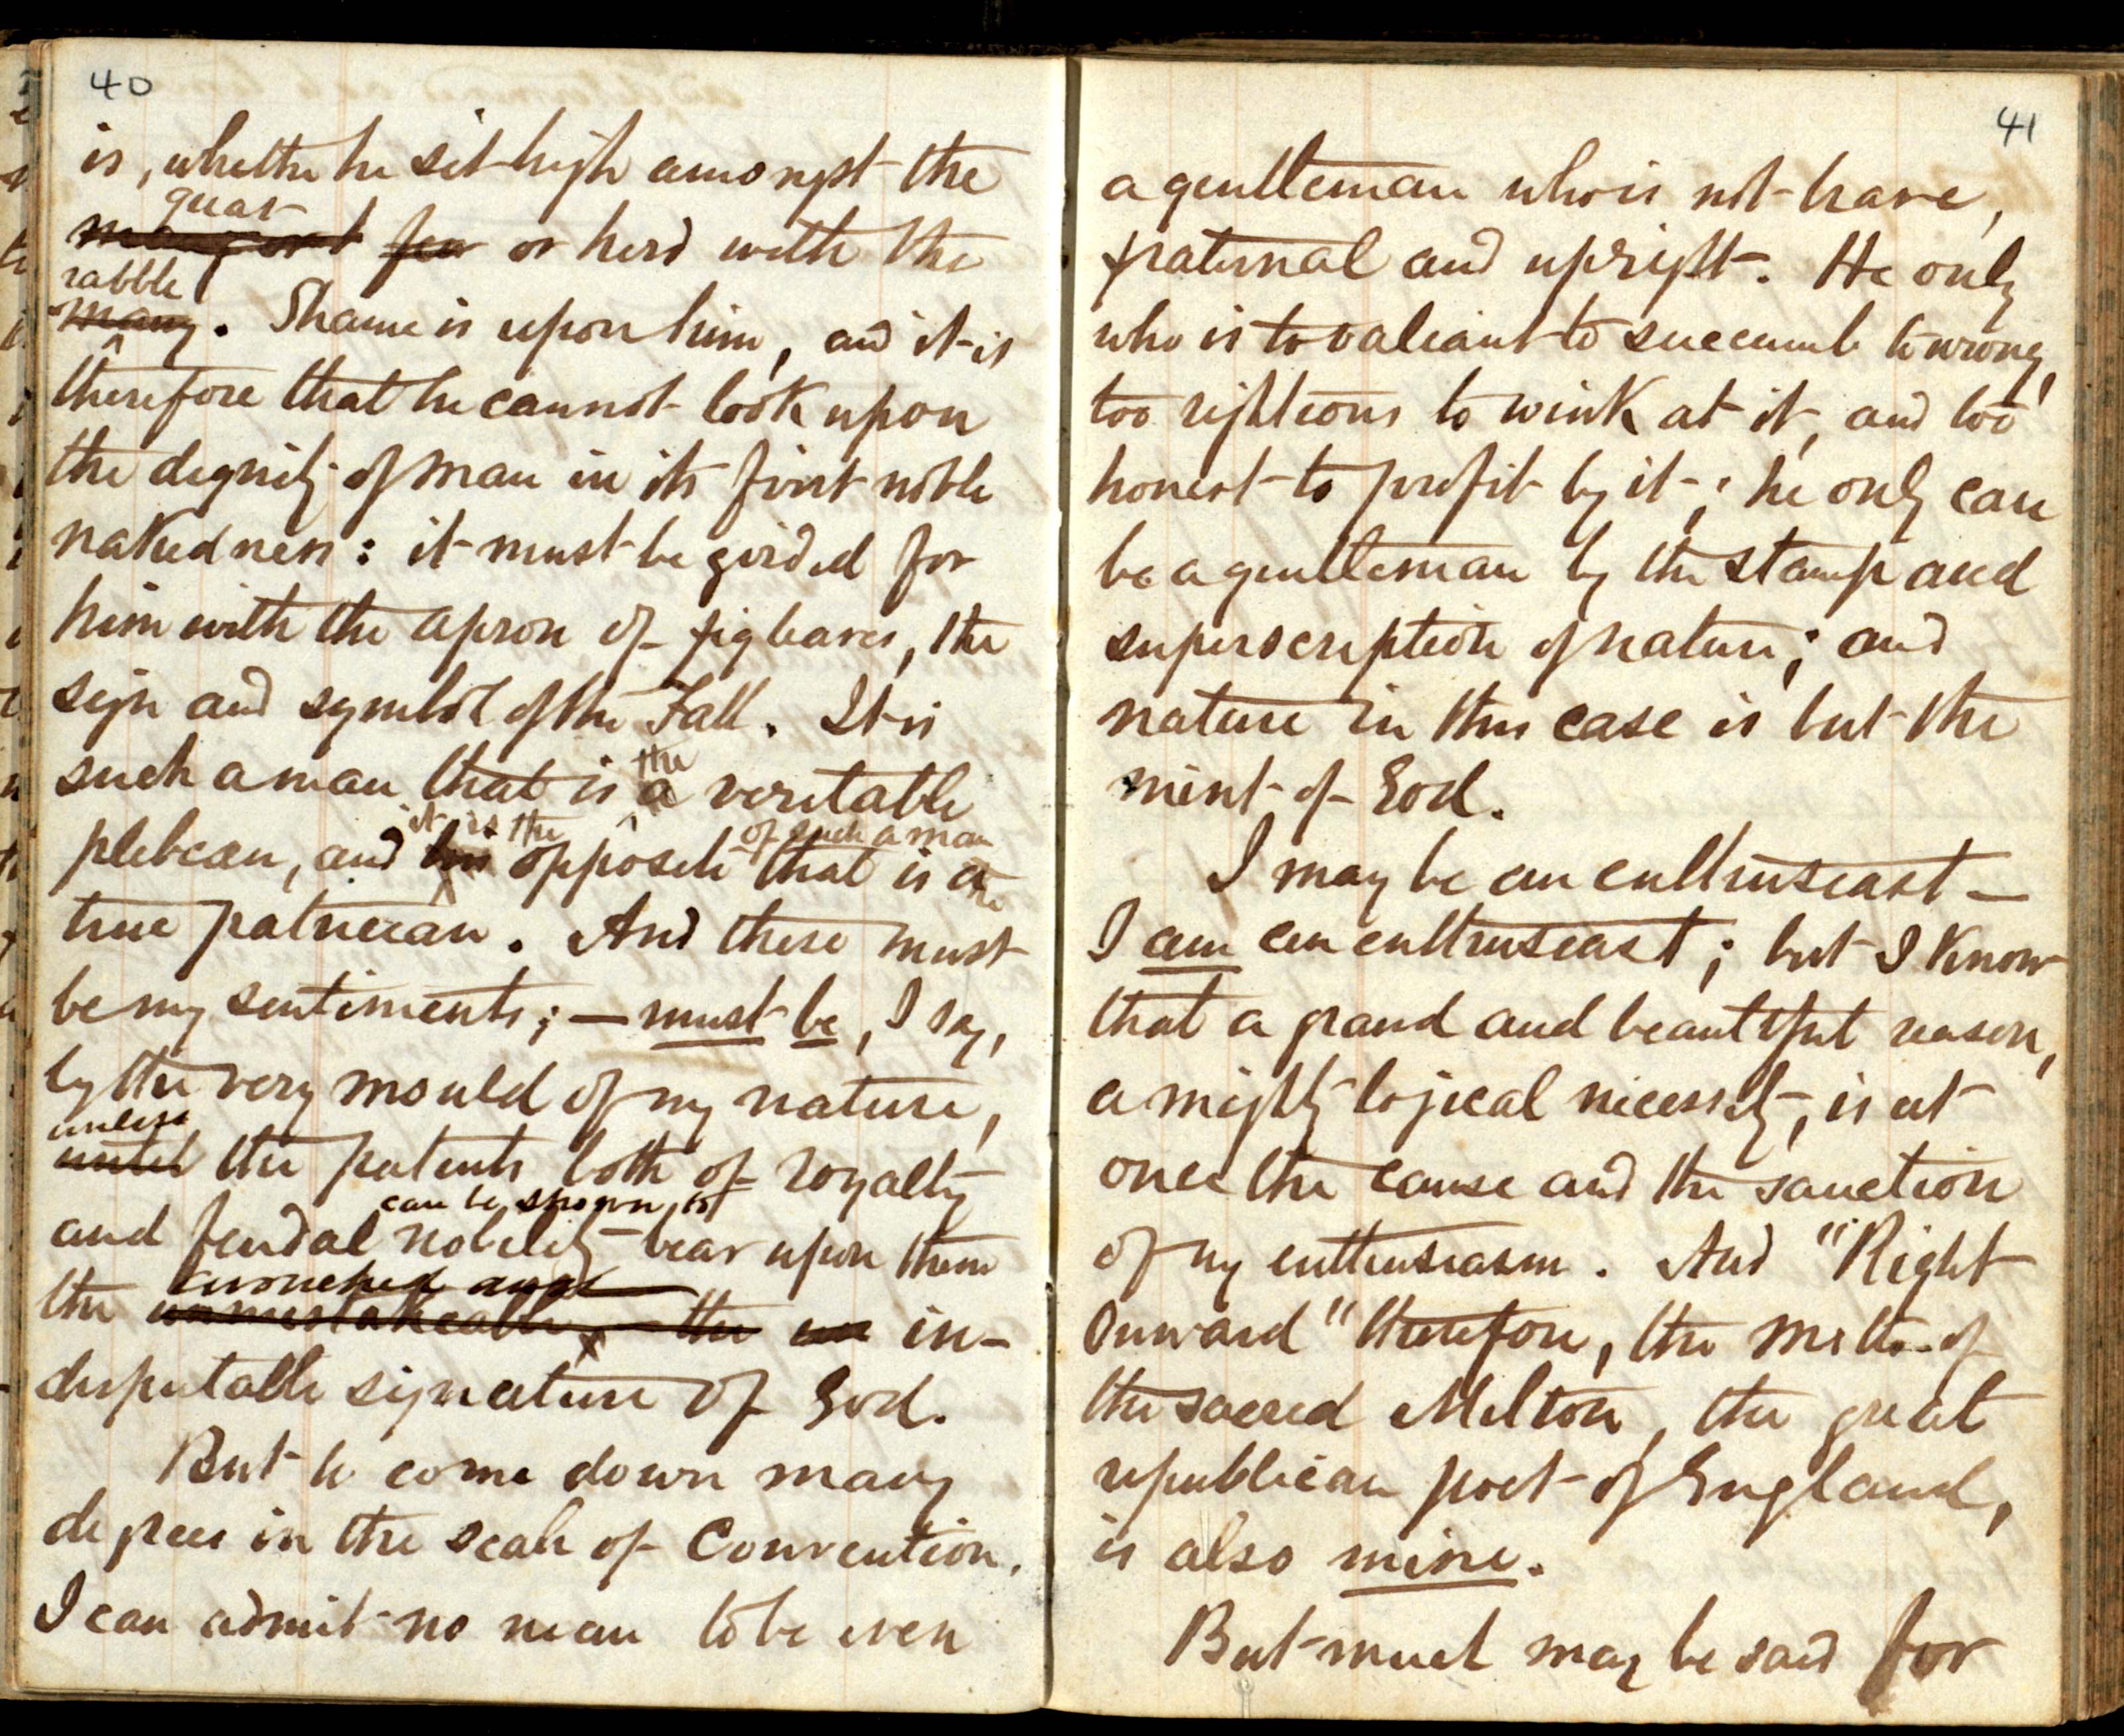 40
is, whether he sit high amongst the
great
few or herd with the
rabble
many. Shame is upon him, and it is
therefore that he cannot look upon
the dignity of man in its first noble
nakedness: it must be girded for
him with the apron of fig leaves, the
sign and symbol of the Fall. It is
the
such a man that is a veritable
it is the of such a man
plebean, and his opposite that is a the
true patrician. And these must
be my sentiments; — must be, I say,
by the very mould of my nature,
unless
until the patents both of royalty
can be shown to
and feudal nobility bear upon them
avouched and
the unmistakeable, the un in-
disputable signature of God.
But to come down many
degrees in the scale of Convention.
I can admit no man to be even
41
a gentleman who is not brave,
fraternal and upright. He only
who is too valiant to succumb to wrong,
too righteous to wink at it, and too
honest to profit by it; he only can
be a gentleman by the stamp and
superscription of nature; and
nature in this case is but the
mint of God.
I may be an enthusiast —
I am an enthusiast; but I know
that a grand and beautiful reason,
a mighty logical necessity, is at
once the cause and the sanction
of my enthusiasm. And "Right
Onward" therefore, the motto of
the sacred Milton, the great
republican poet of England,
is also mine.
But much may be said for